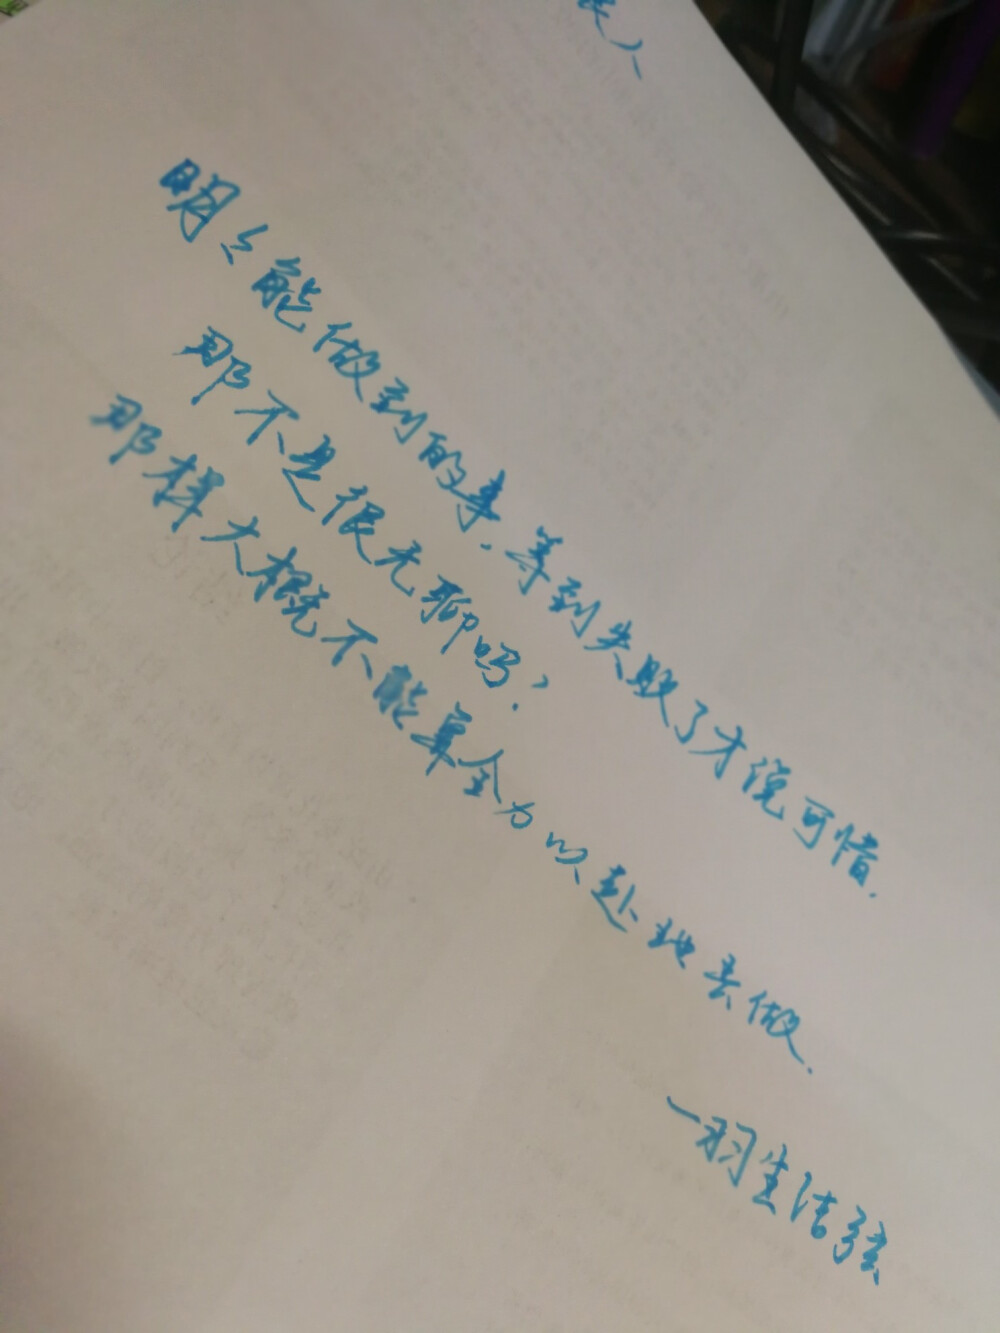 明々能做到的事，等到失败了才说可惜.
那不是很无聊吗？
那样大概不能算全力以赴地去做.
一羽生结弦